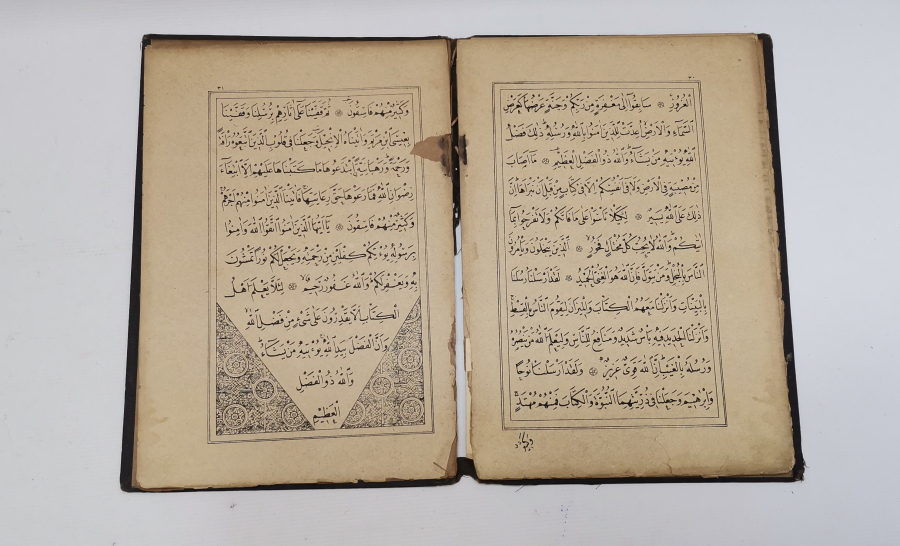 ٣٠
الْغُرُورِ ۞ سَابِقُوا اِلٰى مَغْفِرَةٍ مِنْ رَبِّكُمْ وَجَنَّةٍ عَرْضُهَا كَعَرْضِ
السَّمَاءِ وَالْاَرْضِ اُعِدَّتْ لِلَّذِينَ اٰمَنُوا بِاللّٰهِ وَرُسُلِهِ ذٰلِكَ فَضْلُ
اللّٰهِ يُؤْتِيهِ مَنْ يَشَاءُ وَاللّٰهُ ذُو الْفَضْلِ الْعَظِيمِ ۞ مَا اَصَابَ
مِنْ مُصِيبَةٍ فِي الْاَرْضِ وَلَا فِي اَنْفُسِكُمْ اِلَّا فِي كِتَابٍ مِنْ قَبْلِ اَنْ نَبْرَاَهَا اِنَّ
ذٰلِكَ عَلَى اللّٰهِ يَسِيرٌ ۞ لِكَيْلَا تَاْسَوْا عَلٰى مَا فَاتَكُمْ وَلَا تَفْرَحُوا بِمَا
اٰتٰيكُمْ وَاللّٰهُ لَا يُحِبُّ كُلَّ مُخْتَالٍ فَخُورٍ ۞ اَلَّذِينَ يَبْخَلُونَ وَيَاْمُرُونَ
النَّاسَ بِالْبُخْلِ وَمَنْ يَتَوَلَّ فَاِنَّ اللّٰهَ هُوَ الْغَنِيُّ الْحَمِيدُ ۞ لَقَدْ اَرْسَلْنَا رُسُلَنَا
بِالْبَيِّنَاتِ وَاَنْزَلْنَا مَعَهُمُ الْكِتَابَ وَالْمِيزَانَ لِيَقُومَ النَّاسُ بِالْقِسْطِ
وَاَنْزَلْنَا الْحَدِيدَ فِيهِ بَاْسٌ شَدِيدٌ وَمَنَافِعُ لِلنَّاسِ وَلِيَعْلَمَ اللّٰهُ مَنْ يَنْصُرُهُ
وَرُسُلَهُ بِالْغَيْبِ اِنَّ اللّٰهَ قَوِيٌّ عَزِيزٌ ۞ وَلَقَدْ اَرْسَلْنَا نُوحًا
وَاِبْرٰهِيمَ وَجَعَلْنَا فِي ذُرِّيَّتِهِمَا النُّبُوَّةَ وَالْكِتَابَ فَمِنْهُمْ مُهْتَدٍ
وَكَثِيرٌ
٣١
وَكَثِيرٌ مِنْهُمْ فَاسِقُونَ ۞ ثُمَّ قَفَّيْنَا عَلٰى اٰثَارِهِمْ بِرُسُلِنَا وَقَفَّيْنَا
بِعِيسَى ابْنِ مَرْيَمَ وَاٰتَيْنَاهُ الْاِنْجِيلَ وَجَعَلْنَا فِي قُلُوبِ الَّذِينَ اتَّبَعُوهُ رَاْفَةً
وَرَحْمَةً وَرَهْبَانِيَّةً ابْتَدَعُوهَا مَا كَتَبْنَاهَا عَلَيْهِمْ اِلَّا ابْتِغَاءَ
رِضْوَانِ اللّٰهِ فَمَا رَعَوْهَا حَقَّ رِعَايَتِهَا فَاٰتَيْنَا الَّذِينَ اٰمَنُوا مِنْهُمْ اَجْرَهُمْ
وَكَثِيرٌ مِنْهُمْ فَاسِقُونَ ۞ يَا اَيُّهَا الَّذِينَ اٰمَنُوا اتَّقُوا اللّٰهَ وَاٰمِنُوا
بِرَسُولِهِ يُؤْتِكُمْ كِفْلَيْنِ مِنْ رَحْمَتِهِ وَيَجْعَلْ لَكُمْ نُورًا تَمْشُونَ
بِهِ وَيَغْفِرْ لَكُمْ وَاللّٰهُ غَفُورٌ رَحِيمٌ ۞ لِئَلَّا يَعْلَمَ اَهْلُ
الْكِتَابِ اَلَّا يَقْدِرُونَ عَلٰى شَيْءٍ مِنْ فَضْلِ اللّٰهِ
وَاَنَّ الْفَضْلَ بِيَدِ اللّٰهِ يُؤْتِيهِ مَنْ يَشَاءُ
وَاللّٰهُ ذُو الْفَضْلِ
الْعَظِيمِ